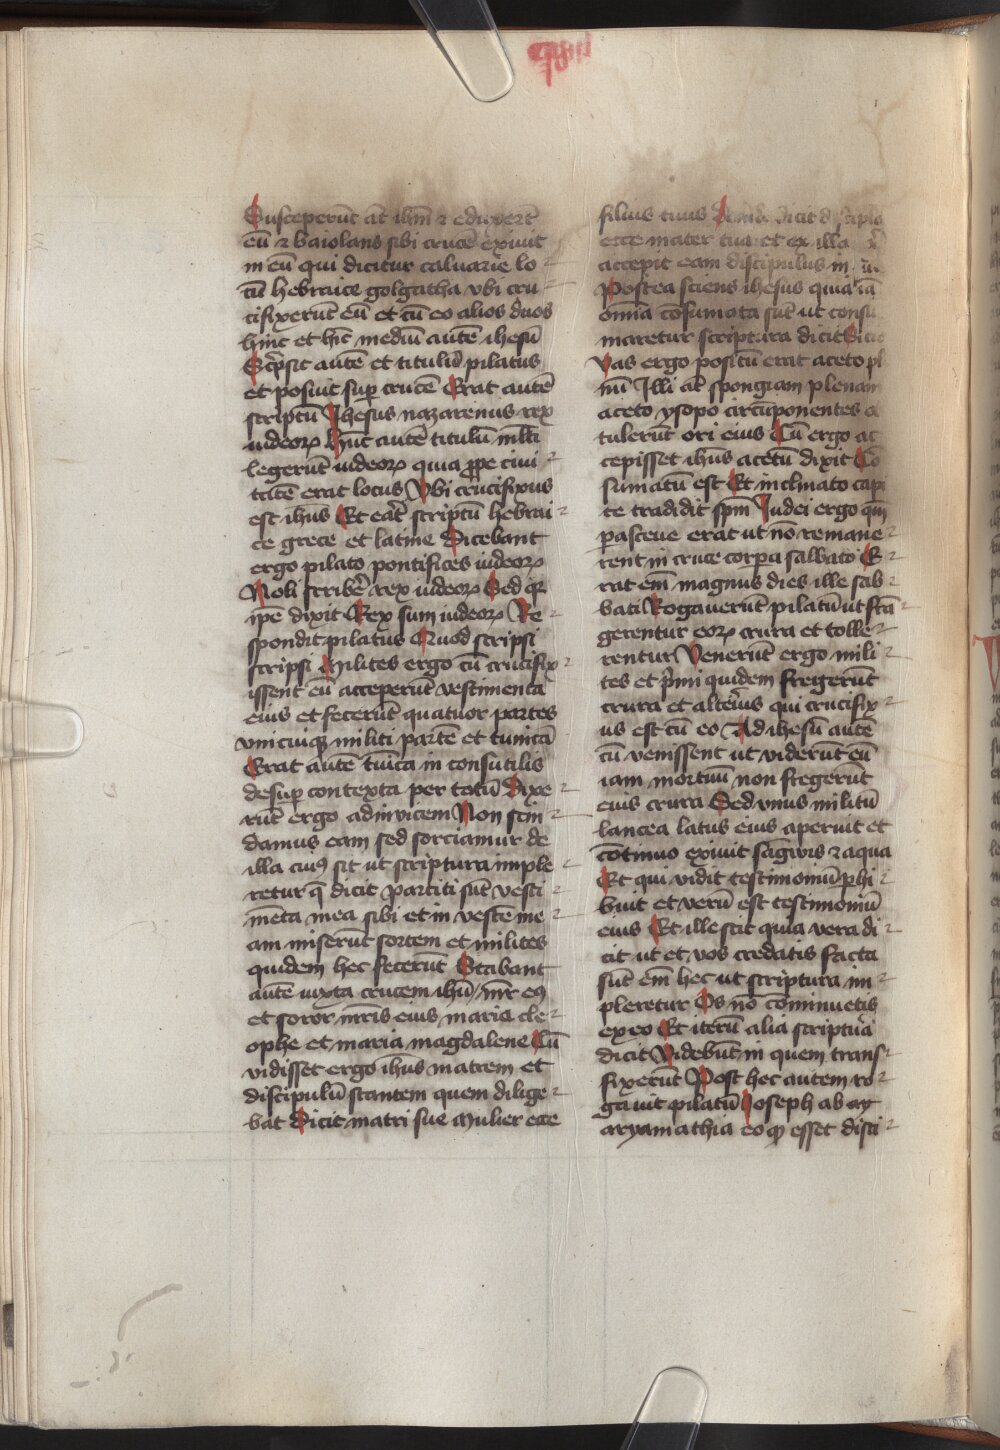 Susceperūt āt ihm̄ ⁊ eduxert̄
eū ⁊ baiolans sibi crucē exiuit
in eū qui dicitur caluarie lo
cū hebraice golgatha vbi cru
cifixerūt eū et cū eo alios duos
hinc et hīc mediū autē ihesū
Scp̄sit autē et titulū pilatus
et posuit sup̄ crucē Erat autē
scriptū Ihesus nazarenus rex
iudeoꝝ hūc autē titulū ml̄ti
legerūt iudeoꝝ quia ꝓpe ciui
tatē erat locus Vbi crucifixus
est ihus Et eāt scriptū hebrai
ce grece et latine Dicebant
ergo pilato pontifices iudeoꝝ
Noli scribē rex iudeoꝝ Sed qꝛ
ip̄e dixit Rex sum iudeoꝝ Re
spondit pilatus Quod scripsi
scripsi Milites ergo cū crucifix
issent eū acceperūt vestimenta
eius et fecerūt quatuor partes
vnicuiqꝫ militi partē et tunicā
Erat autē tūica in consutilis
desup̄ contexta per totū Dixe
rūt ergo adinvicem Non scin
damus eam sed sorciamur de
illa cuiꝰ sit ut scriptura imple
retur q̄ dicit partiti sūt vesti
mēta mea sibi et in vestē me
am miserūt sortem et milites
quidem hec fecerūt Stabant
autē iuxta crucem ihū mr̄ eiꝰ
et soror mr̄is eius maria cle
ophe et maria magdalene Cū
vidisset ergo ihūs matrem et
discipulū stantem quem dilige
bat Dicit matri sue mulier ecce
filius tuus dicit
ecce mater tua et ex illa
accepit eam discipulus in
Postea sciens ihesus quia iā
omnia cōsumata sūt ut consu
maretur scriptura dicit
Vas ergo positū erat aceto pl
nū Illi āt spongiam plenam
aceto ysopo circūponentes
tulerūt ori eius Cū ergo ac
cepisset ihus acetū dixit Cō
sumatū est Et inclinato capi
te tradidit spm̄ Iudei ergo qm̄
ꝑasceue erat ut nō remane
rent in cruce corpa sabbato E
rat em̄ magnus dies ille sab
bati Rogauerūt pilatū ut frā
gerentur eoꝝ crura et tolle
rentur Venerūt ergo mili
tes et p̄mi quidem fregerūt
crura et alterius qui crucifix
us est cū eo Ad ihesū autē
cū venissent ut viderūt eū
iam mortuū non fregerūt
eius crura Sed vnus militū
lancea latus eius aperuit et
cōtinuo exiuit sāgwis ⁊ aqua
Et qui vidit testimoniū ꝑhi
buit et verū est testimoniū
eius Et ille scit quia vera di
cit ut et vos credatis facta
sūt em̄ hec ut scriptura im
pleretur Os nō cōminuetis
ex eo Et iterū alia scriptura
dicit Videbūt in quem trans
fixerūt Post hec autem ro
gauit pilatū Ioseph ab ar
aryamathia eo ꝙ esset disci